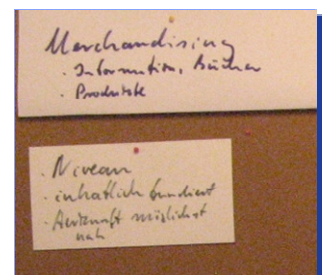 Merchandising
· Information, Bücher
· Produkte
· Niveau
· inhaltlich fundiert
· Auskunft möglichst
nah